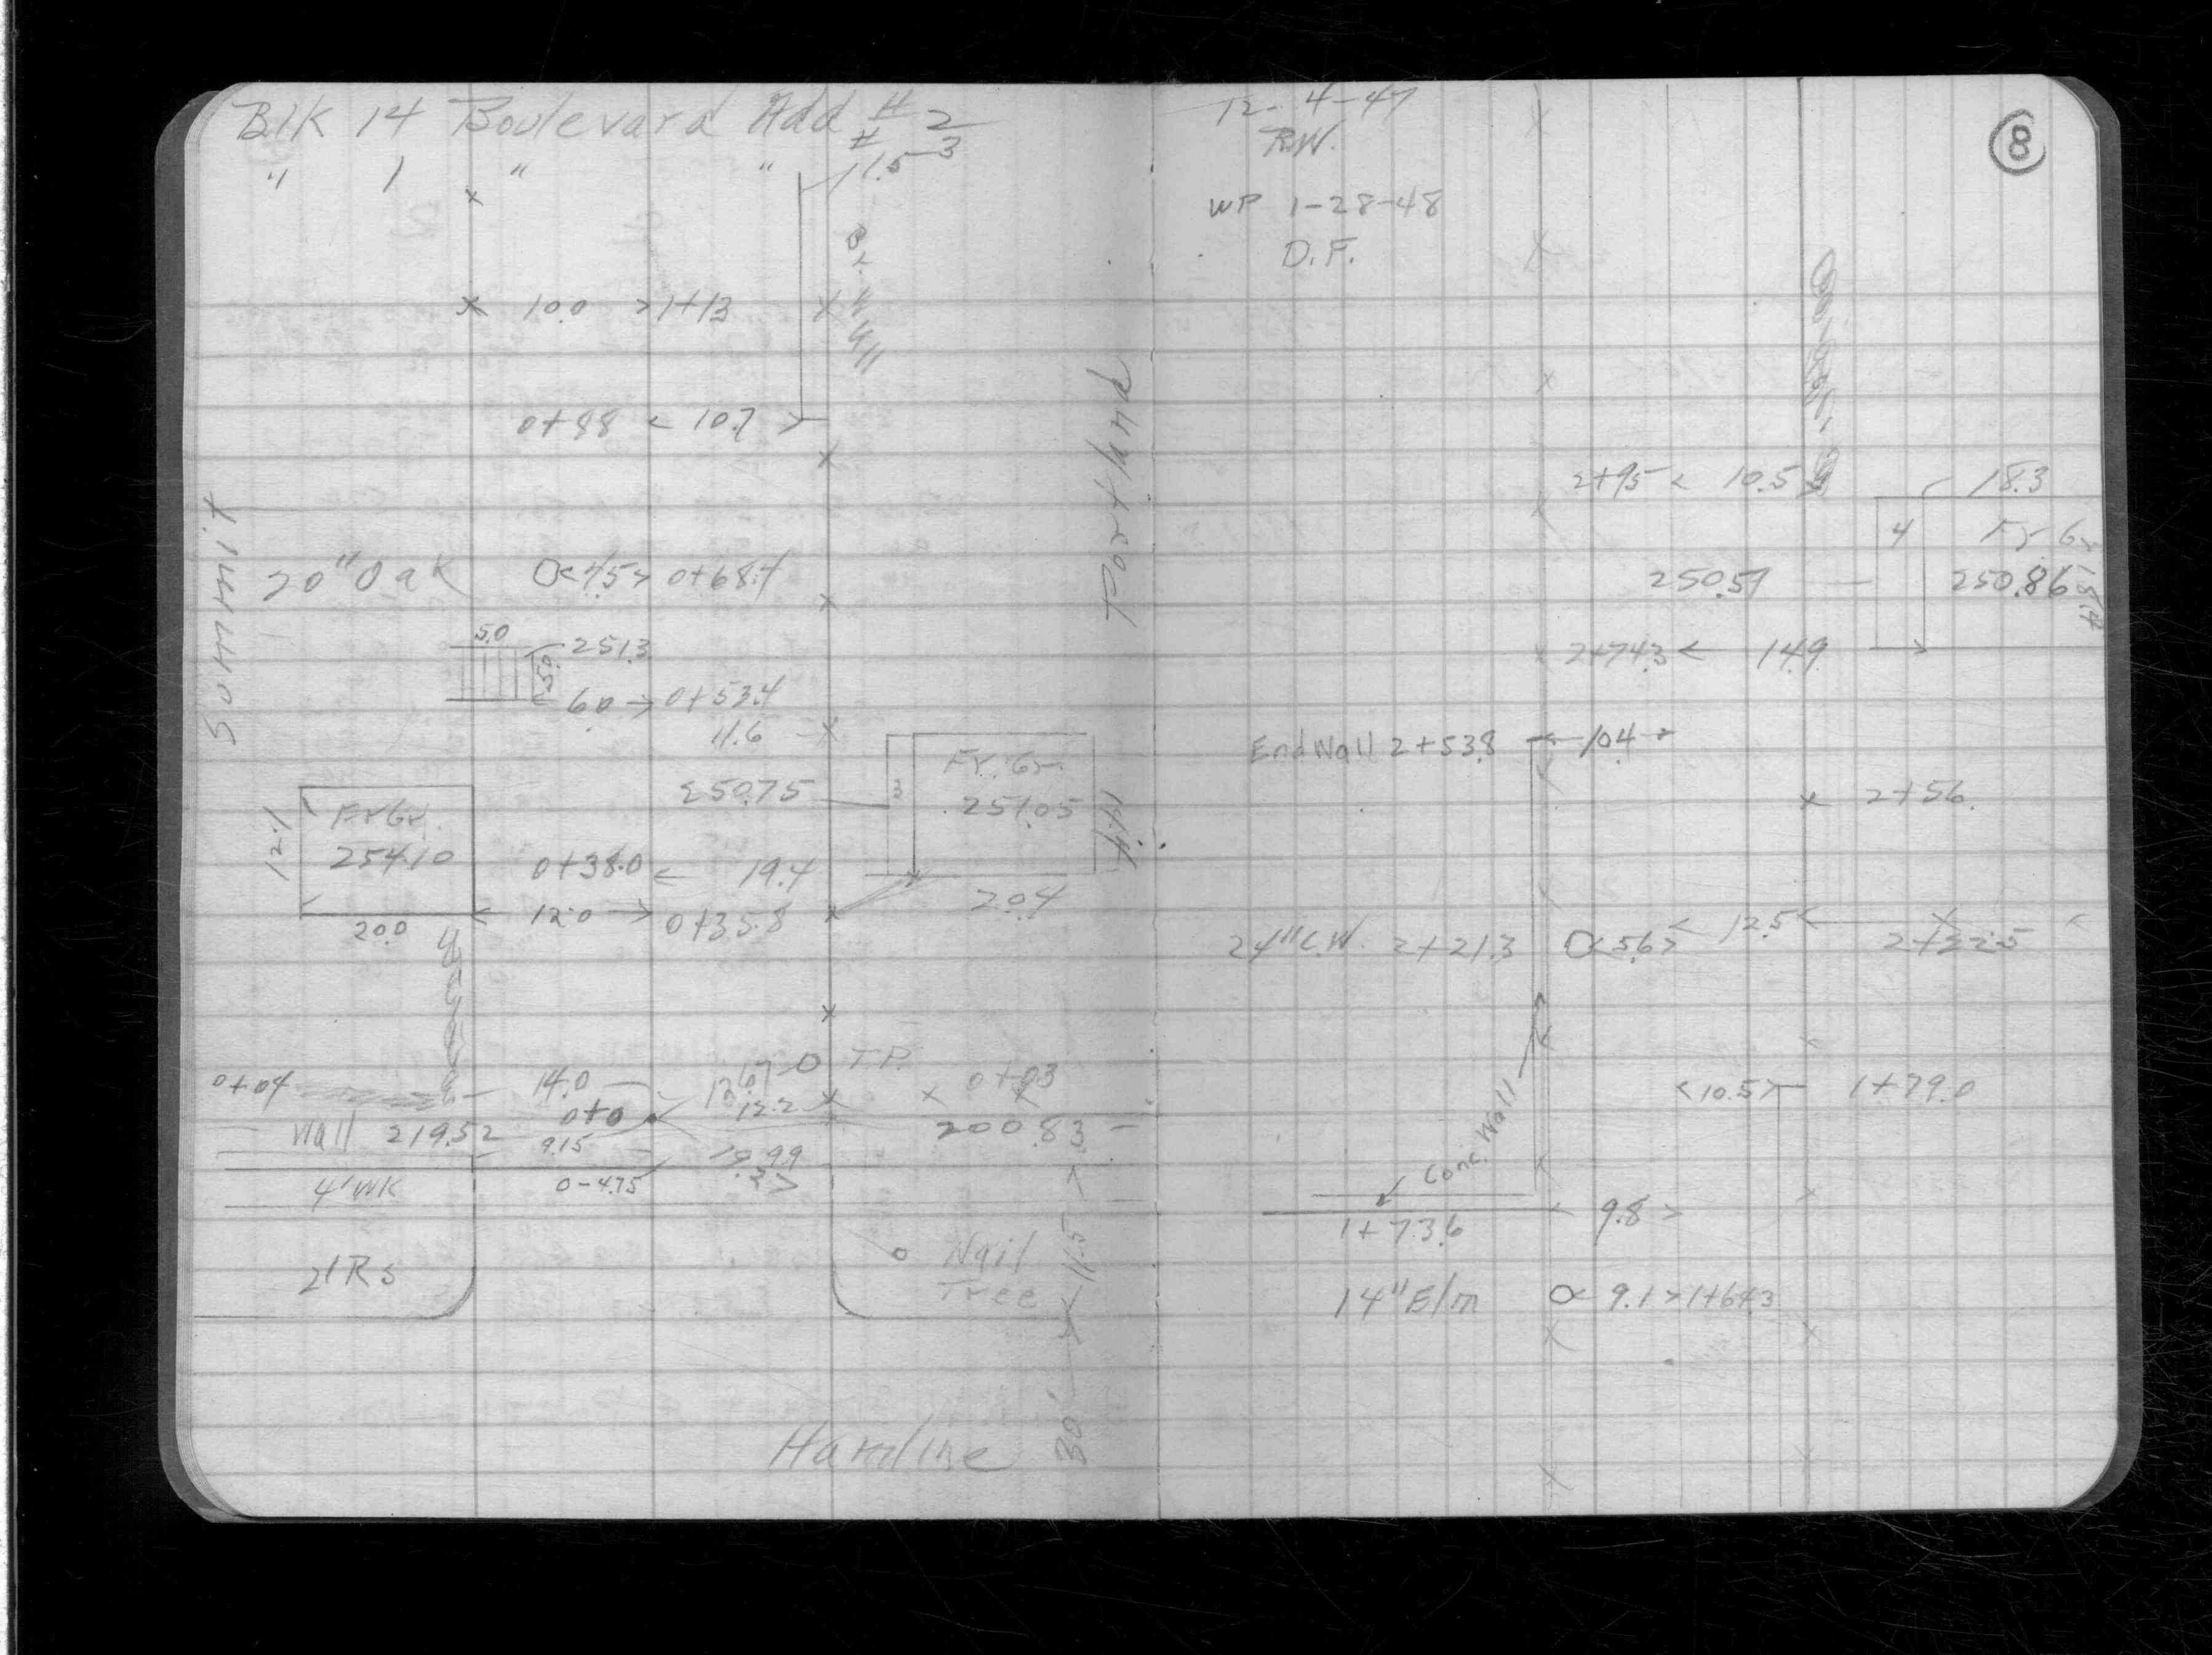 Blk 14 Boulevard Add # 2
" 1 " " # 3
11.5
10.0 >1+13
0+88 < 10.7 >
Summit
Portland
20" Oak O<7.5> 0+68.4
5.0
251.3
5.0
6.0 → 0+53.4
11.6
250.75
3
Fr. Gr.
251.05
Fr Gr.
254.10
12.1
20.0
0+38.0 < 19.4
12.0 → 0+35.8
20.4
T.P.
0+04
14.0
0+03
0+0
12.2
Wall 219.52
200.83
9.15
4' WK
0-4.75
21Rs
Nail
Tree
11.5
30'
Hamline
12-4-47
R.W.
WP 1-28-48
D.F.
8
2+95 < 10.5
18.3
4
Fr Gr
250.57
250.86
18.4
2+74.3 < 14.9
End Wall 2+53.8 10.4
2+56.
24" C.W. 2+21.3 O<5.6> < 12.5 <
2+22.5
<10.5> 1+79.0
Conc. Wall
1+73.6
9.8 >
14" Elm O< 9.1 >1+64.3